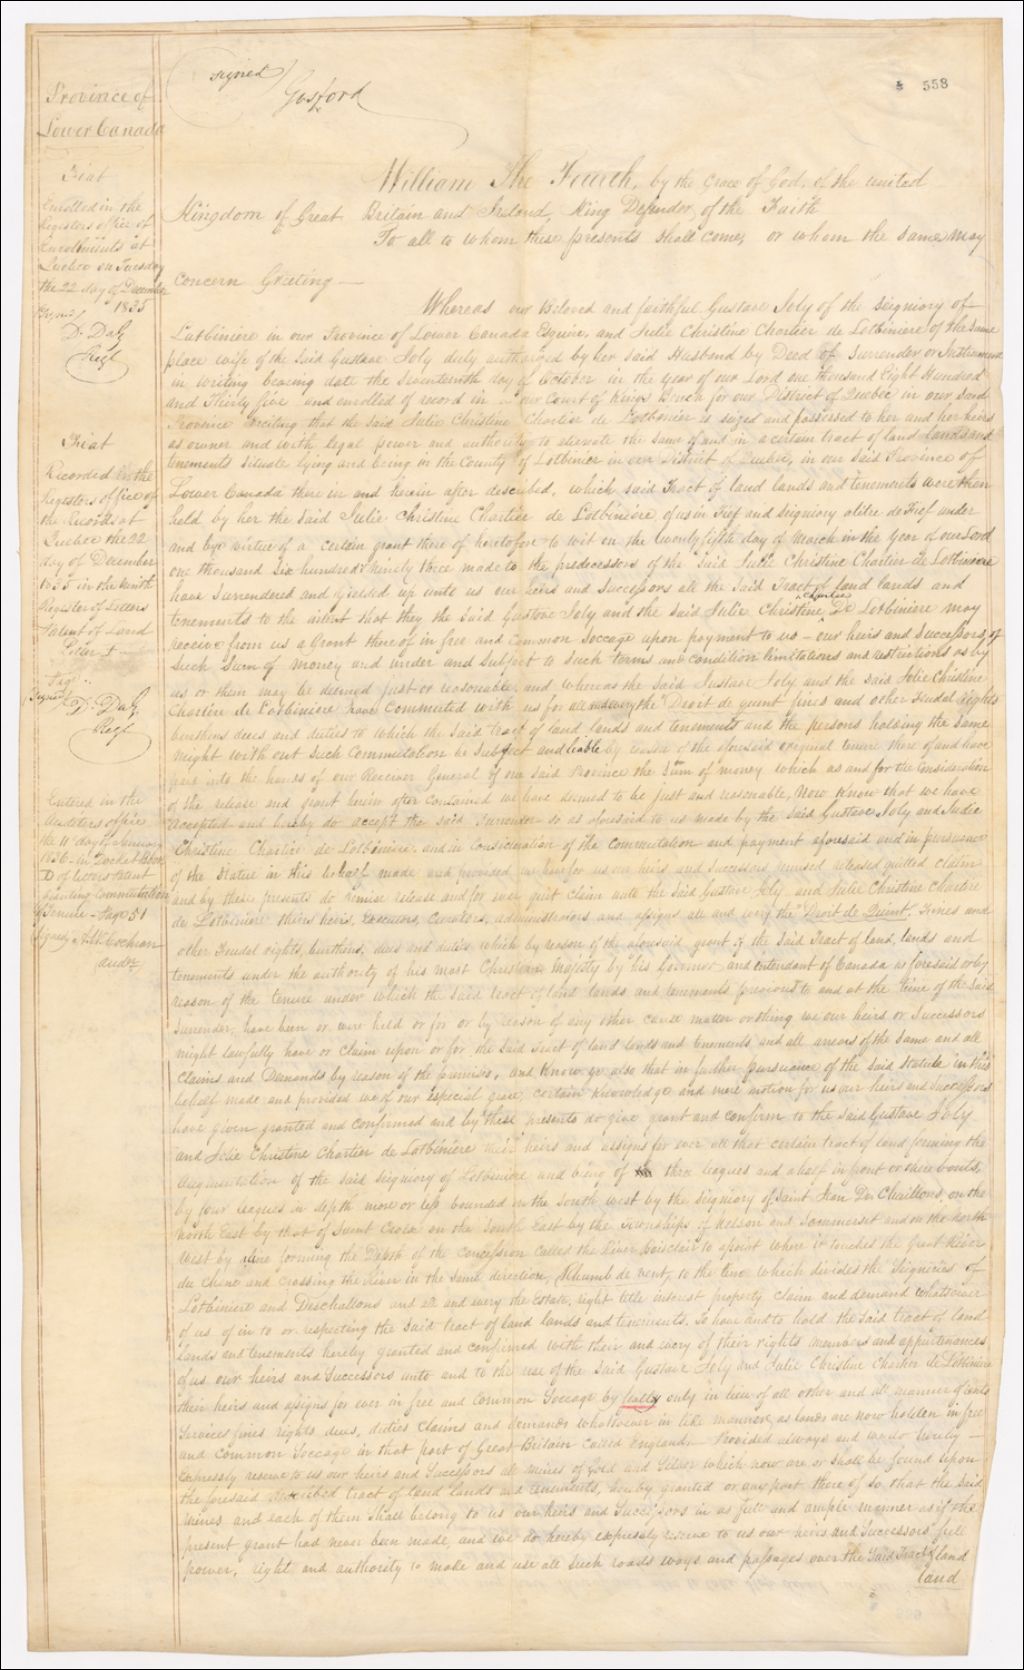 Province of
Lower Canada
Fiat
Enrolled in the
Registers office of
Enrollments at
Quebec on Tuesday
the 22 day of December
1835
Signed
D. Daly
Regr
Fiat
Recorded in the
Registers office of
the Records at
Quebec the 22
day of December
1835 in the ninth
Register of Letters
Patent of Land
Page
Signed
D. Daly
Regr
Entered in the
Auditors office
the 11 day of January
1836 in Docket Book
D of letters Patent
granting Commutation
of Tenure - Page 51
Signed A W Cochran
Audr
signed
Gosford
558
William The Fourth, by the Grace of God, of the united
Kingdom of Great Britain and Ireland, King Defender of the Faith
To all to whom these presents shall come, or whom the same may
concern Greeting —
Whereas our Beloved and faithful Gustave Joly of the Seigniory of
Lotbiniere in our Province of Lower Canada Esquire, and Julie Christine Chartier de Lotbiniere of the same
place wife of the said Gustave Joly duly authorized by her said Husband by Deed of Surrender or Instrument
in writing bearing date the Seventeenth day of October in the year of our Lord one thousand Eight Hundred
and Thirty five and enrolled of record in our Court of Kings Bench for our District of Quebec in our said
Province reciting that the said Julie Christine Chartier de Lotbiniere is seized and possessed to her and her heirs
as owner and with legal power and authority to alienate the same of and in a certain tract of land lands and
tenements situate lying and being in the County of Lotbinier in our District of Quebec, in our said Province of
Lower Canada there in and herein after described, which said Tract of land lands and tenements were then
held by her the said Julie Christine Chartier de Lotbiniere, of us in Fief and Seigniory a titre de Fief under
and by virtue of a certain grant there of heretofore to wit on the twenty fifth day of March in the year of our Lord
one thousand six hundred & ninety three made to the predecessors of the said Julie Christine Chartier de Lotbiniere
have Surrendered and yielded up unto us our heirs and Successors all the said Tract of land lands and
tenements to the intent that they the said Gustave Joly and the said Julie Christine Chartier De Lotbiniere may
receive from us a Grant there of in free and common Soccage upon payment to us — our heirs and Successors, of
such Sum of money and under and subject to such terms and condition limitations and restrictions as by
us or them may be deemed just or reasonable, and whereas the said Gustave Joly and the said Julie Christine
Chartier de Lotbiniere have Commuted with us for all and every the Droit de quint fines and other Feudal Rights
burthens dues and duties to which the said tract of land, lands and tenements and the persons holding the same
might with out such Commutation be Subject and liable by reason of the aforesaid original tenure there of and have
paid into the hands of our Receiver General of our said Province the Sum of money which as and for the consideration
of the release and grant herein after contained we have deemed to be just and reasonable, Now Know that we have
accepted and hereby do accept the said surrender so as aforesaid to us made by the said Gustave Joly and Julie
Christine Chartier de Lotbiniere and in consideration of the commutation and payment aforesaid and in pursuance
of the Statue in this behalf made and provided we have for us our heirs and Successors remised released quitted claim
and by these presents do remise release and for ever quit claim unto the said Gustave Joly and Julie Christine Chartier
de Lotbiniere their heirs, executors, curators, administrators and assigns all and every the Droit de Quint, Fines and
other Feudal rights, burthens, dues and duties which by reason of the aforesaid grant of the said Tract of land, lands and
tenements under the authority of his most Christian Majesty by his Governor and intendant of Canada as foresaid or by
reason of the tenure under which the said tract of land lands and tenements previous to and at the time of the said
surrender, have been or were held or for or by reason of any other cause matter or thing we our heirs or Successors
might lawfully have or claim upon or for the said Tract of land lands and tenements and all arrears of the same and all
Claims and Demands by reason of the premises, and Know ye also that in further pursuance of the said Statute in this
behalf made and provided we of our especial grace, certain knowledge and mere motion for us our heirs and Successors
have given granted and confirmed and by these presents do give grant and confirm to the said Gustave Joly
and Julie Christine Chartier de Lotbiniere their heirs and assigns for ever all that certain tract of land forming the
Augmentation of the said Seigniory of Lotbiniere and being of three leagues and a half in front or there abouts,
by four leagues in depth more or less bounded on the South west by the Seigniory of Saint Jean De Chaillons, on the
North East by that of Sainte Croix on the South East by the Townships of Nelson and Sommerset and on the North
West by a line forming the Depth of the Concession called the River Boisclair to a point where it touches the Great River
du Chene and crossing the River in the same direction, Rhumb de vent, to the line which divides the Seigniories of
Lotbiniere and Deschallons and all and every the Estate, right title interest property claim and demand whatsoever
of us of in to or respecting the said tract of land lands and tenements, To have and to hold the said tract of land
lands and tenements hereby granted and confirmed with their and every of their rights members and appurtenances
of us our heirs and Successors unto and to the use of the said Gustave Joly and Julie Christine Chartier de Lotbiniere
their heirs and assigns for ever in free and common Soccage by fealty only in lieu of all other and all manner of rents
Services fines rights, dues, duties claims and demands whatsoever in like manner as lands are now holden in free
and common Soccage in that part of Great Britain called England, — Provided always and we do hereby —
expressly reserve to us our heirs and Sucessors all mines of Gold and Silver which now are or shall be found upon
the foresaid described tract of land lands and tenements, hereby granted or any part there of so that the said
mines and each of them shall belong to us our heirs and Successors in as full and ample manner as if the
present grant had never been made, and we do hereby expressly reserve to us our heirs and Successors full
power, right and authority to make and use all such roads ways and passages over the said Tract of land
land